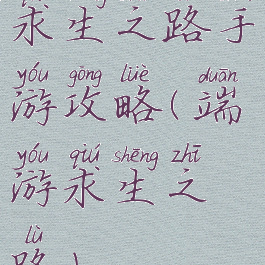 求生之路手
yóu gōng lüè duān
游攻略(端
yóu qiú shēng zhī
游求生之
lù
路)